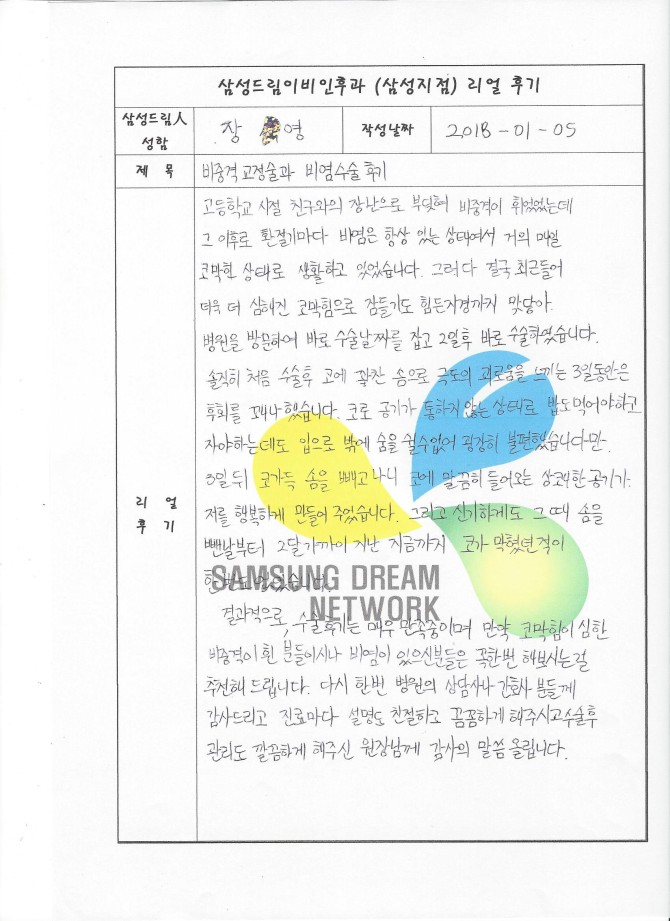 삼성드림이비인후과 (삼성지점) 리얼 후기
삼성드림人
성함
장 영
작성날짜
2018-01-05
제 목
비중격교정술과 비염수술 후기
리 얼
후 기
고등학교 시절 친구와의 장난으로 부딪혀 비중격이 휘었었는데
그 이후로 환절기마다 비염은 항상 있는 상태여서 거의 매일
코막힌 상태로 생활하고 있었습니다. 그러다 결국 최근들어
더욱 더 심해진 코막힘으로 잠들기도 힘든지경까지 맞닿아
병원을 방문하여 바로 수술날짜를 잡고 2일후 바로 수술하였습니다.
솔직히 처음 수술후 코에 꽉찬 솜으로 극도의 괴로움을 느끼는 3일동안은
후회를 꽤나 했습니다. 코로 공기가 통하지 않는 상태로 밥도먹어야하고
자야하는데도 입으로 밖에 숨을 쉴수없어 굉장히 불편했습니다만.
3일 뒤 코가득 솜을 빼고나니 코에 말끔히 들어오는 상쾌한공기가
저를 행복하게 만들어 주었습니다. 그리고 신기하게도 그때 솜을
뺀날부터 2달가까이 지난 지금까지 코가 막혔던적이
한번도 없었습니다.
SAMSUNG DREAM
NETWORK
결과적으로, 수술후기는 매우 만족중이며 만약 코막힘이 심한
비중격이 휜 분들이시나 비염이 있으신분들은 꼭한번 해보시는걸
추천해 드립니다. 다시 한번 병원의 상담사나 간호사 분들께
감사드리고 진료마다 설명도 친절하고 꼼꼼하게 해주시고수술후
관리도 깔끔하게 해주신 원장님께 감사의 말씀 올립니다.